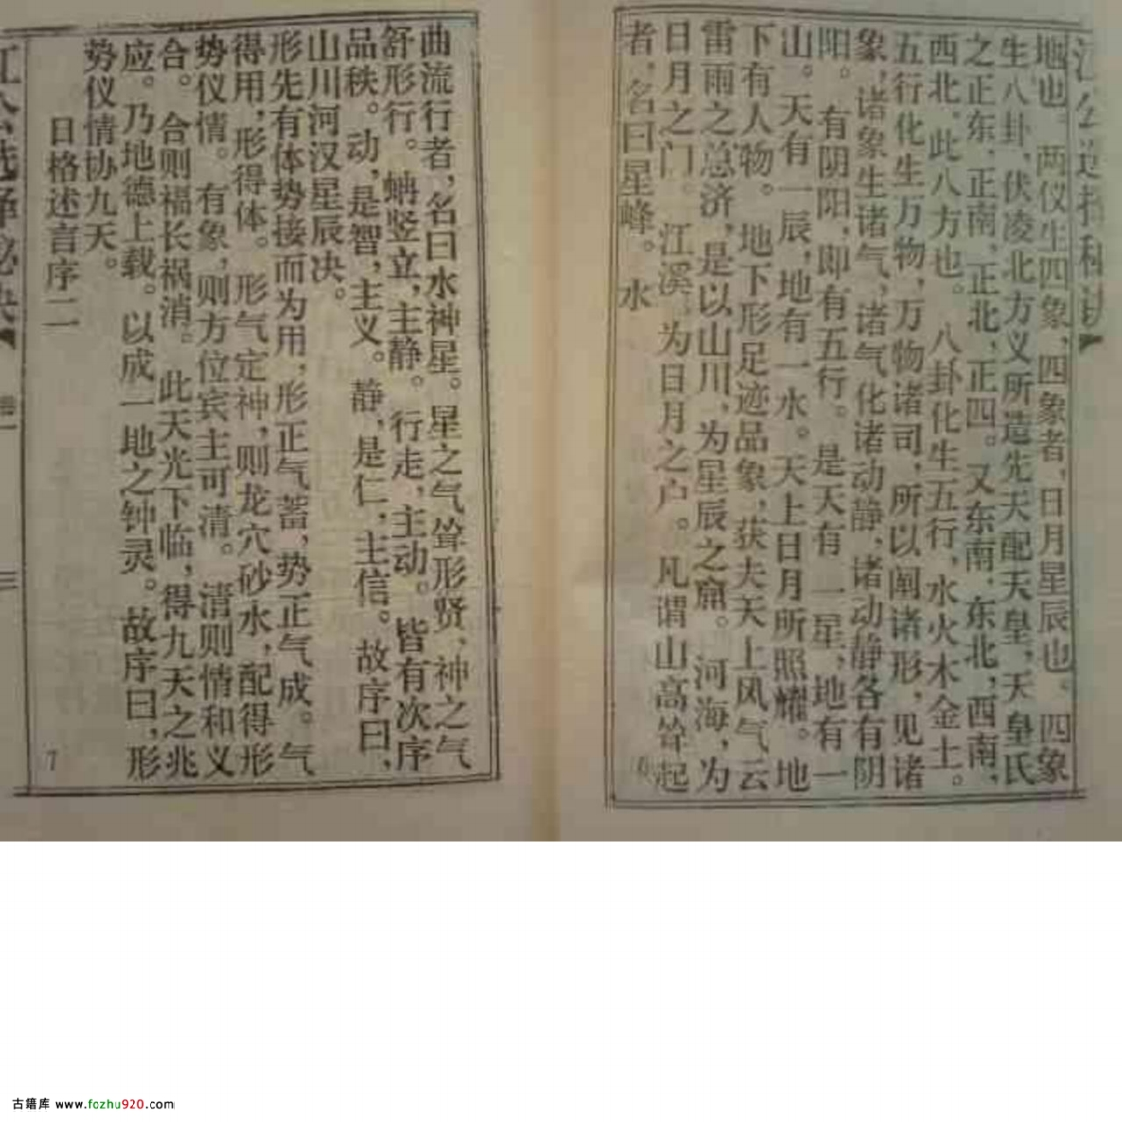 江公选择秘诀
地也。两仪生四象,四象者,日月星辰也。四象
生八卦,伏凌北方义所造先天配天皇,天皇氏
之正东,正南,正北,正四。又东南,东北,西南,
西北。此八方也。八卦化生五行,水火木金土。
五行化生万物,万物诸司,所以阐诸形,见诸
象,诸象生诸气,诸气化诸动静,诸动静各有阴
阳。有阴阳,即有五行。是天有一星,地有一
山。天有一辰,地有一水。天上日月所照耀。地
下有人物。地下形足迹品象,获夫天上风气云
雷雨之总济,是以山川,为星辰之窟。河海,为
日月之门。江溪,为日月之户。凡谓山高耸起
者,名曰星峰。水
6
曲流行者,名曰水神星。星之气耸形贤,神之气
舒形行。蚺竖立,主静。行走,主动。皆有次序
品秩。动,是智,主义。静,是仁,主信。故序曰,
山川河汉星辰决。
形先有体势接而为用,形正气蓄,势正气成。气
得用,形得体。形气定神,则龙穴砂水,配得形
势仪情。有象,则方位宾主可清。清则情和义
合。合则福长祸消。此天光下临,得九天之兆
应。乃地德上载。以成一地之钟灵。故序曰,形
势仪情协九天。
日格述言序二
7
江公选择秘诀
古籍库 www.fozhu920.com